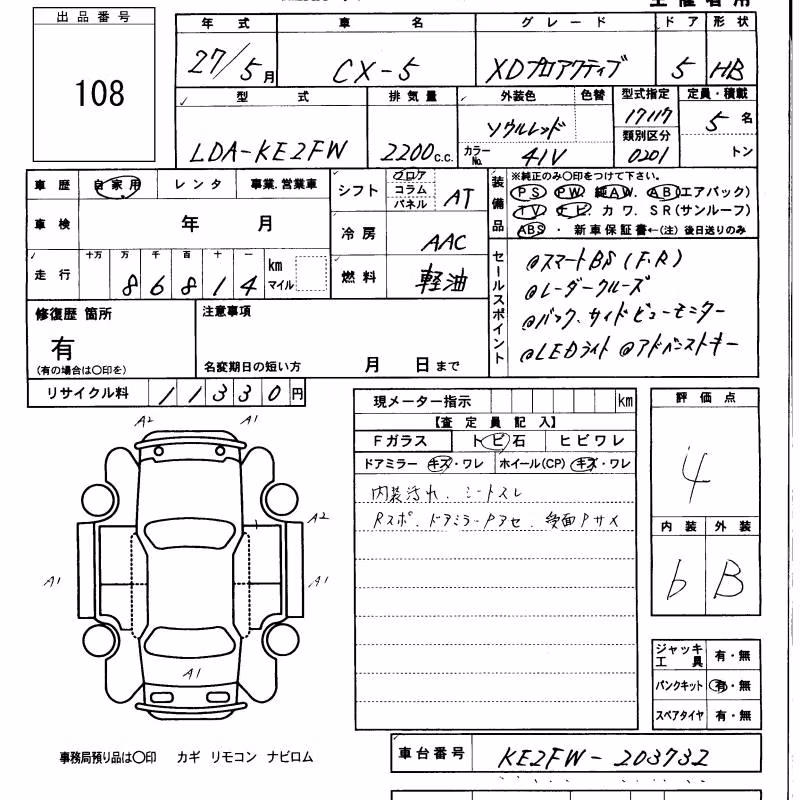 出品番号
108
年式 車名 グレード ドア 形状
27/5月 CX-5 XDプロアクティブ 5 HB
型式 排気量 外装色 色替 型式指定 定員・積載
LDA-KE2FW 2200c.c. ソウルレッド 17117 5名
カラーNo. 41V 類別区分 0201 トン
車歴 自家用 レンタ 事業.営業車
シフト フロア コラム パネル AT
装備品 ※純正のみ〇印をつけて下さい。
PS PW 純AW. AB(エアバック)
TV ナビ. カワ. SR(サンルーフ)
ABS ・ 新車保証書←(注) 後日送りのみ
車検 年 月
冷房 AAC
走行 十万 万 千 百 十 一 km マイル
86814
燃料 軽油
セールスポイント
@スマートBS(F.R)
@レーダークルーズ
@バック、サイドビューモニター
@LEDライト @アドバンストキー
修復歴 箇所
有
(有の場合は〇印を)
注意事項
名変期日の短い方 月 日まで
リサイクル料 11330円
現メーター指示 km
【査定員記入】
Fガラス トビ石 ヒビワレ
ドアミラー キズ・ワレ ホイール(CP) キズ・ワレ
内装汚れ、シートスレ
Rスポ、ドアミラーPアセ、
評価点
4
内装 外装
b B
A2 A1
A2
A1 A1
A1
ジャッキ工具 有・無
パンクキット 有・無
スペアタイヤ 有・無
事務局預り品は〇印 カギ リモコン ナビロム
車台番号 KE2FW-203732